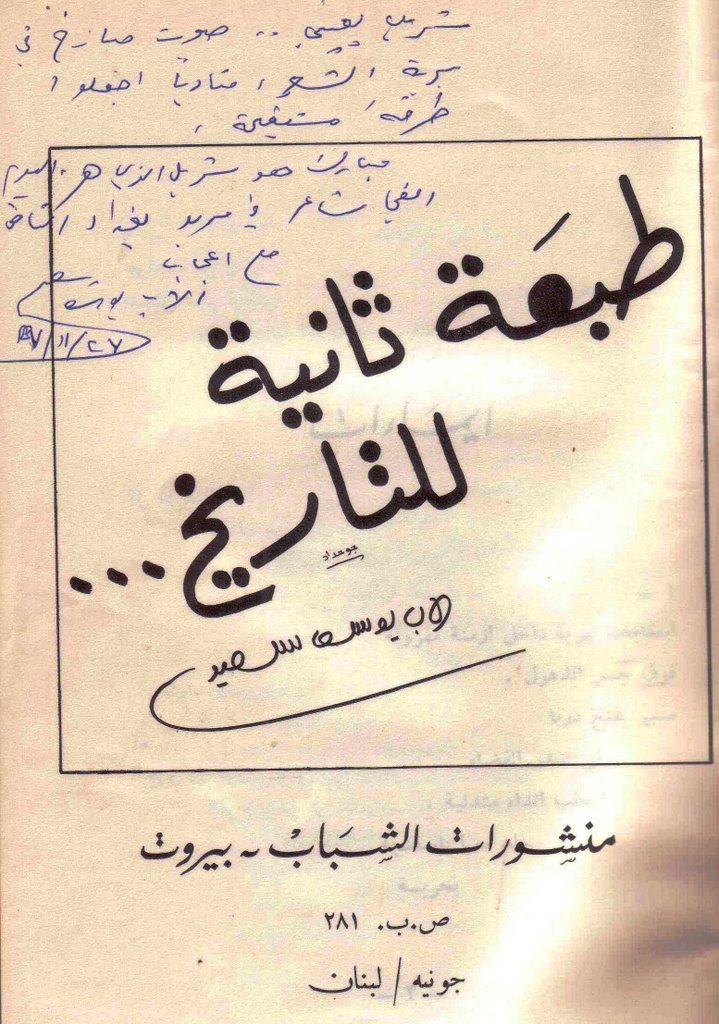 شربل بعيني .. صوت صارخ في
برية الشعر، منادياً اجعلوا
طرقه مستقيمة،
مبارك هو شربل الذي هو اليوم
شاعر في مربد بغداد
مع اعجاب
الأب يوسف سعيد
٢٧/١١/
طبعَة ثانية
للتاريخ...
جوحداد
الاب يوسف سعيد
منشورات الشبَاب - بيروت
ص.ب. ٢٨١
جونيه / لبنان